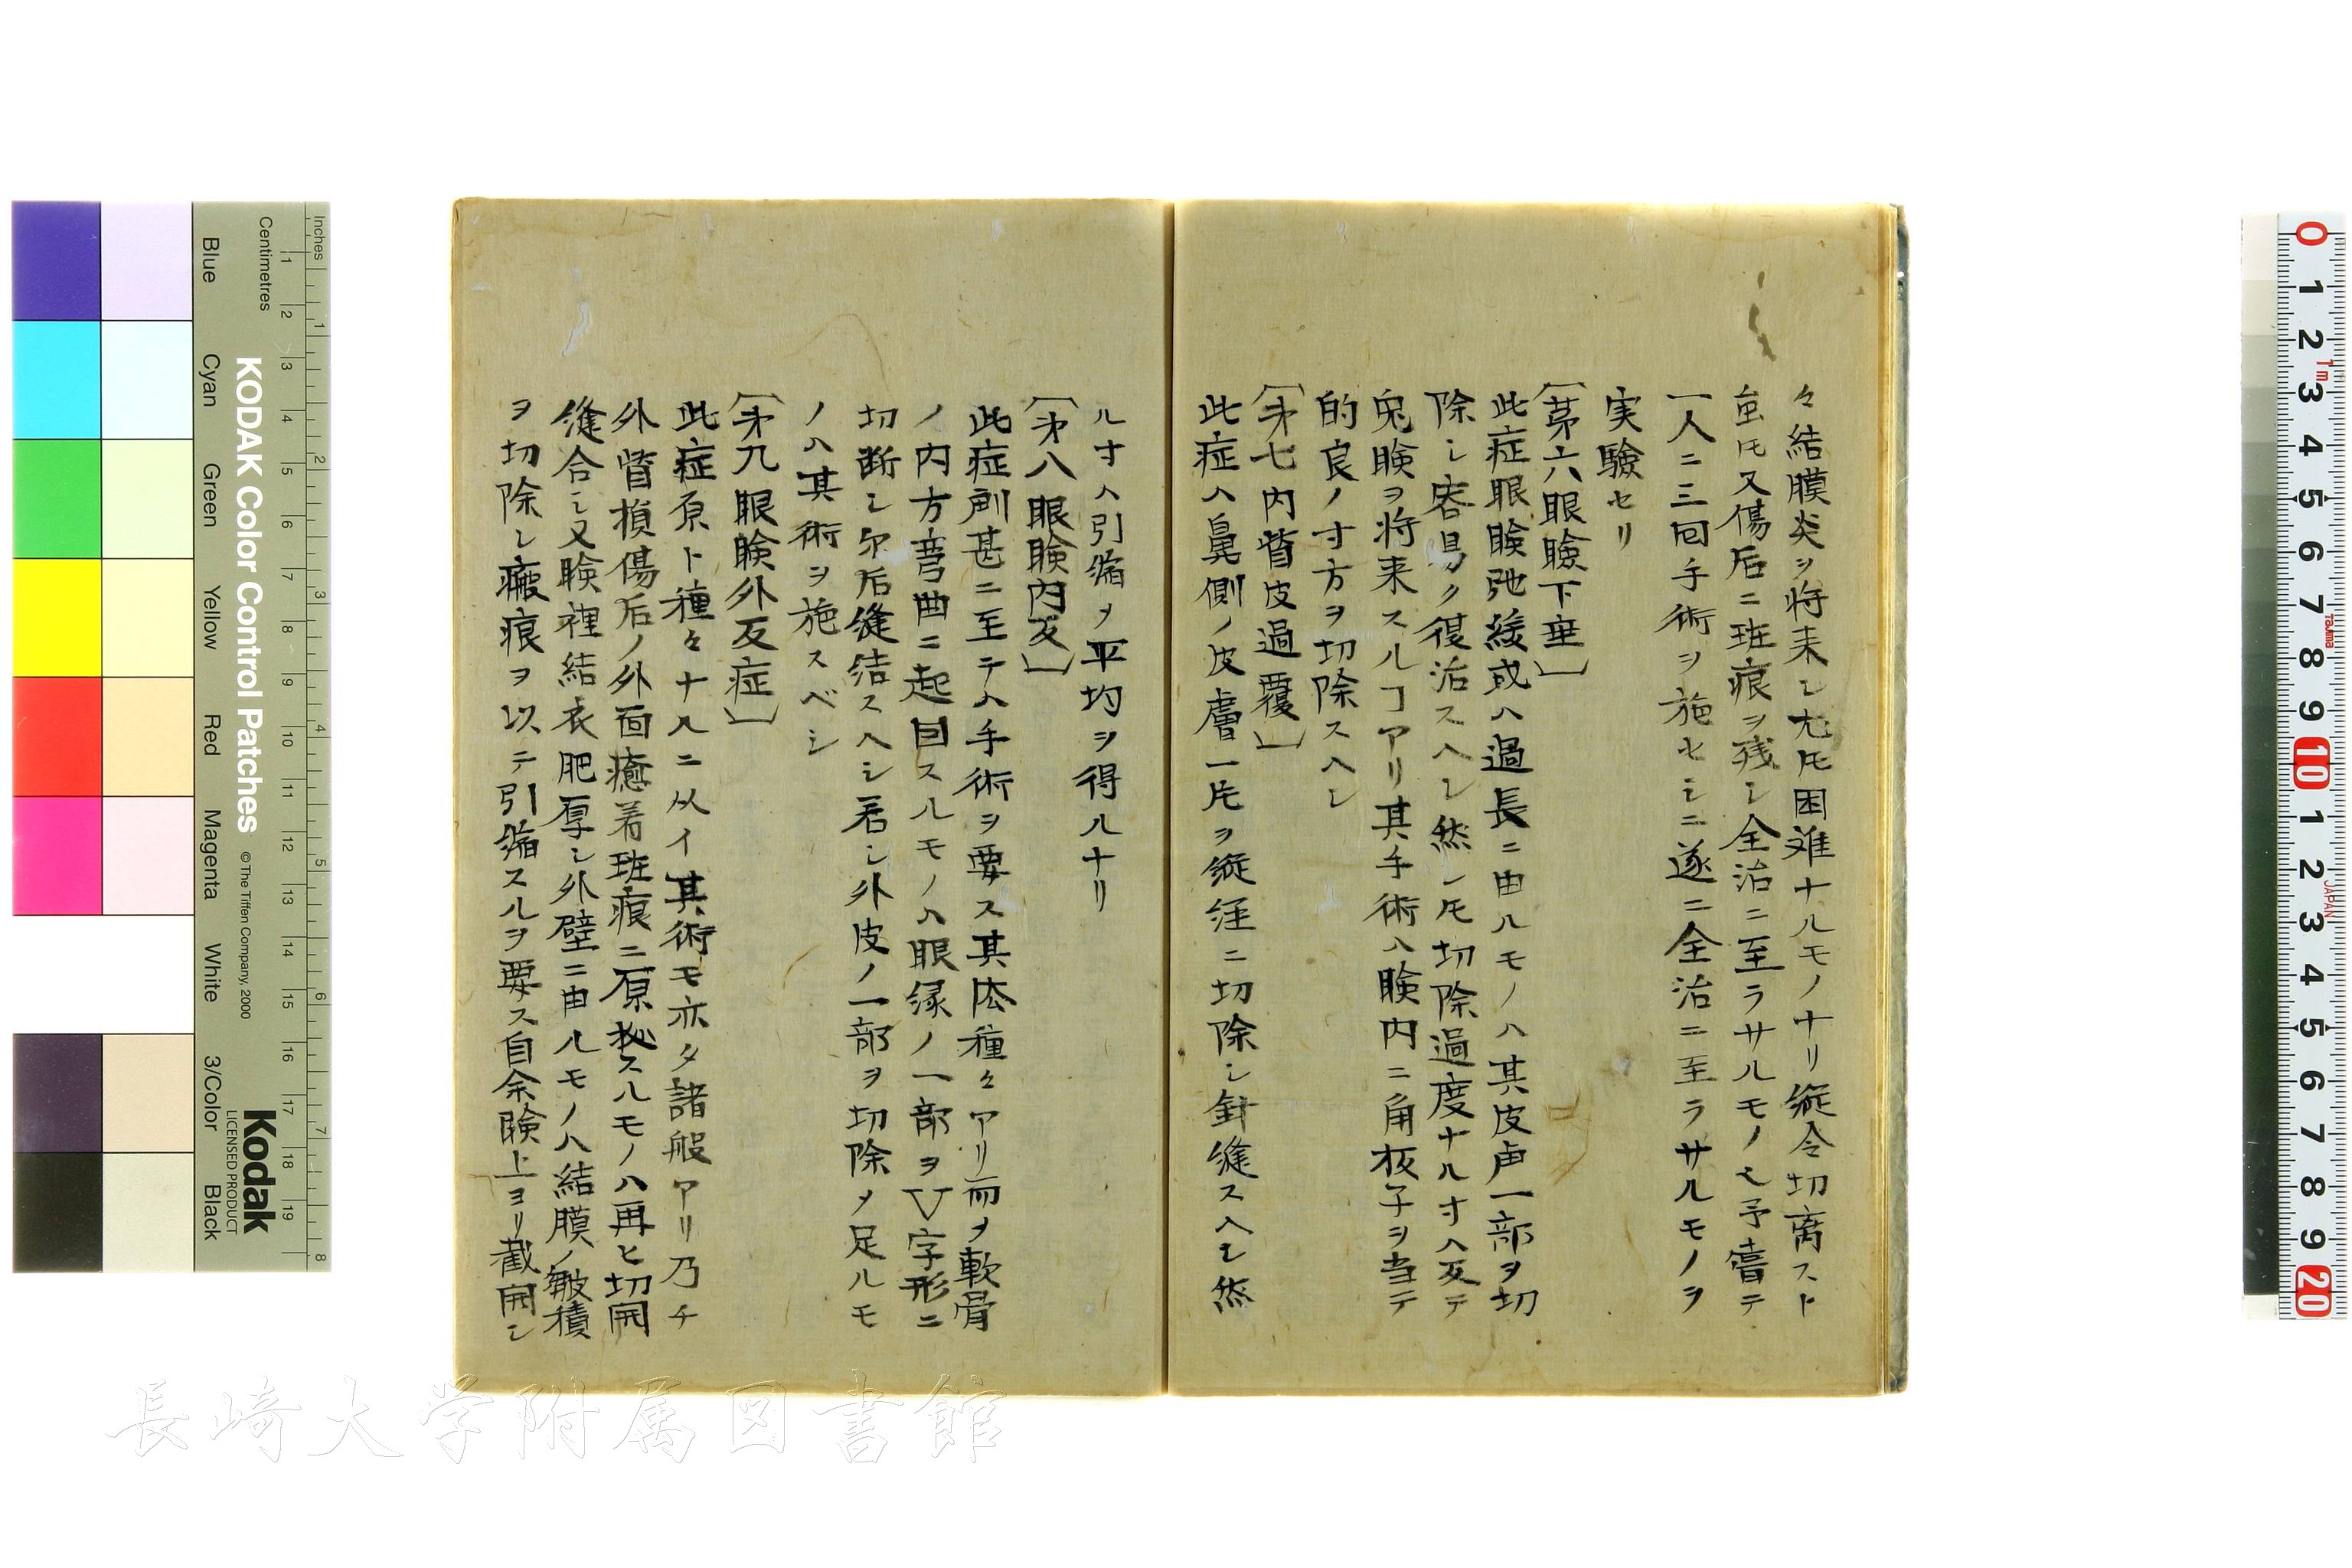 々結膜炎ヲ将来シ尤𪜈困難ナルモノナリ縦令切离スト
虽𪜈又傷后ニ斑痕ヲ残シ全治ニ至ラサルモノ也予嘗テ
一人ニ三回手術ヲ施セシニ遂ニ全治ニ至ラサルモノヲ
実驗セリ
〔第六眼瞼下垂〕
此症眼瞼弛緩或ハ過長ニ由ルモノハ其皮一部ヲ切
除シ容易ク復治スヘシ然シ𪜈切除過度ナル寸ハ反テ
兎瞼ヲ将来スルヿアリ其手術ハ瞼内ニ角板子ヲ当テ
的良ノ寸方ヲ切除スヘシ
〔才七内眥皮過覆〕
此症ハ鼻側ノ皮膚一片ヲ縦径ニ切除シ針縫スヘシ然
ル寸ハ引縮メ平均ヲ得ルナリ
〔才八眼瞼内反〕
此症劇甚ニ至テハ手術ヲ要ス其法種々アリ而ヲ軟骨
ノ内方弯曲ニ起因スルモノハ眼縁ノ一部ヲV字形ニ
切断シ尓后縫結スヘシ若シ外皮ノ一部ヲ切除メ足ルモ
ノハ其術ヲ施スベシ
〔才九眼瞼外反症〕
此症原ト種々ナルニ从イ其術モ亦タ諸般アリ乃チ
外眥損傷后ノ外面癒着斑痕ニ原スルモノハ再ヒ切開
縫合シ又瞼裡結衣肥厚シ外壁ニ由ルモノハ結膜ノ皺積
ヲ切除シ瘢痕ヲ以テ引縮スルヲ要ス自余瞼上ヨリ截開シ
Inches
Centimetres
KODAK Color Control Patches
© The Tiffen Company, 2000
Kodak
LICENSED PRODUCT
Blue
Cyan
Green
Yellow
Red
Magenta
White
3/Color
Black
1 2 3 4 5 6 7 8 9 10 11 12 13 14 15 16 17 18 19
1 2 3 4 5 6 7 8
0 1 2 3 4 5 6 7 8 9 10 1 2 3 4 5 6 7 8 9 20
1m
TaJIMa
JAPAN
長崎大学附属図書館